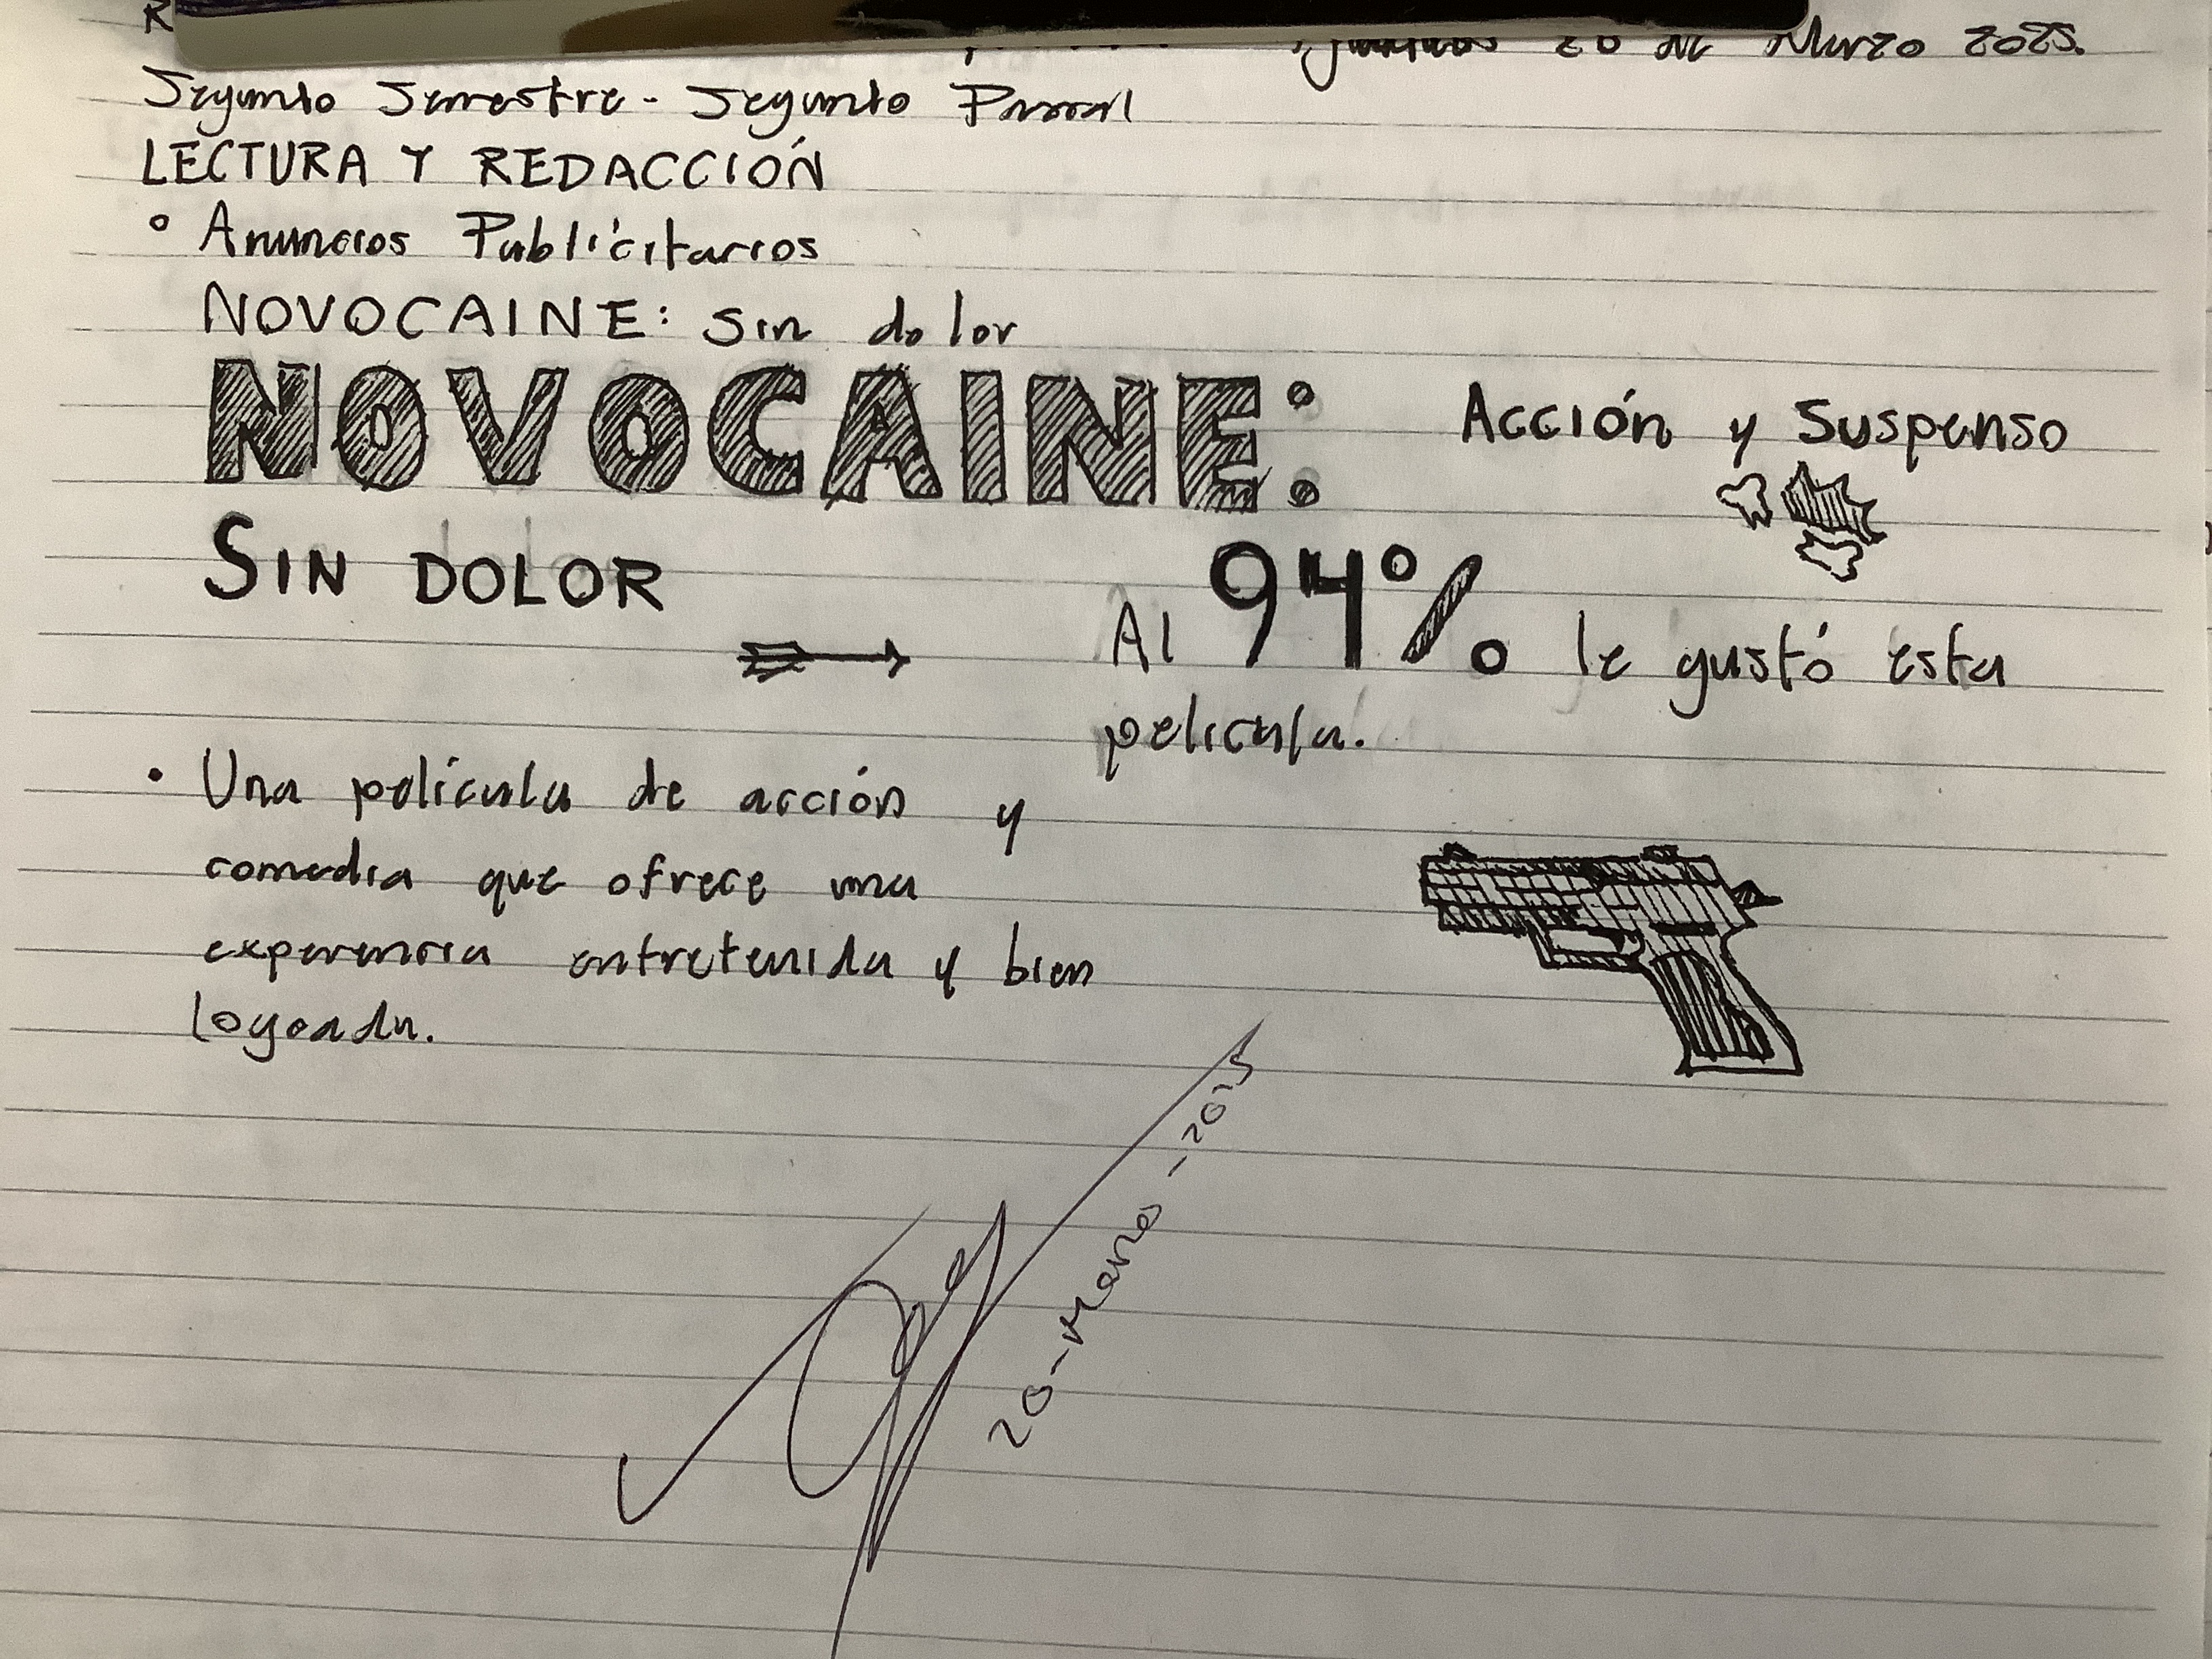 20 de Marzo 2025.
Segundo Semestre - Segundo Parcial
LECTURA Y REDACCIÓN
° Anuncios Publicitarios
NOVOCAINE: sin dolor
NOVOCAINE:
Acción y Suspenso
SIN DOLOR
Al 94% le gustó esta
película.
• Una película de acción y
comedia que ofrece una
experiencia entretenida y bien
lograda.
20-Marzo-2025